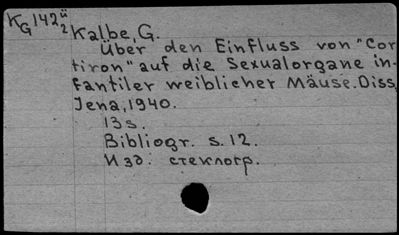 K G 142 ü 2
Kalbe, G.
Über den Einfluss von "Cor-
tiron" auf die Sexualorgane in-
fantiler weiblicher Mäuse. Diss.
Jena, 1940.
13 s.
Bibliogr. s. 12.
Изд. стеклогр.